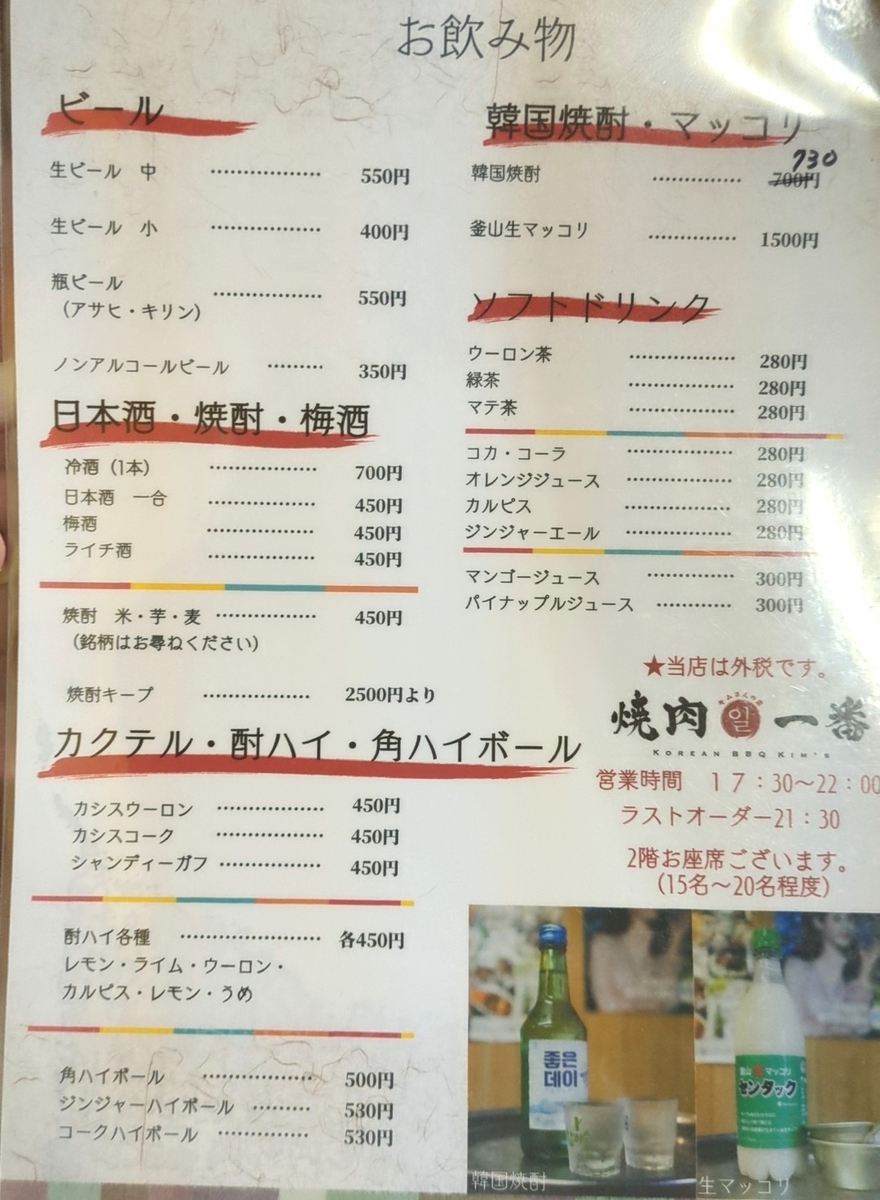 お飲み物
ビール
生ビール 中 ………………… 550円
生ビール 小 ………………… 400円
瓶ビール
(アサヒ・キリン) ………………… 550円
ノンアルコールビール ……… 350円
日本酒・焼酎・梅酒
冷酒 (1本) ………………… 700円
日本酒 一合 ………………… 450円
梅酒 ………………… 450円
ライチ酒 ………………… 450円
焼酎 米・芋・麦 ……………… 450円
(銘柄はお尋ねください)
焼酎キープ ………………… 2500円より
カクテル・酎ハイ・角ハイボール
カシスウーロン ………………… 450円
カシスコーク ………………… 450円
シャンディーガフ ……………… 450円
酎ハイ各種 ……………………… 各450円
レモン・ライム・ウーロン・
カルピス・レモン・うめ
角ハイボール ………………… 500円
ジンジャーハイボール ……… 530円
コークハイボール …………… 530円
韓国焼酎・マッコリ
730
韓国焼酎 …………… 700円
釜山生マッコリ …………… 1500円
ソフトドリンク
ウーロン茶 ………………… 280円
緑茶 ………………… 280円
マテ茶 ………………… 280円
コカ・コーラ ………………… 280円
オレンジジュース ………………… 280円
カルピス ………………… 280円
ジンジャーエール ………………… 280円
マンゴージュース …………… 300円
パイナップルジュース ………… 300円
★当店は外税です。
キムさんの店
焼肉 일 一番
KOREAN BBQ KIM'S
営業時間 17:30〜22:00
ラストオーダー21:30
2階お座席ございます。
(15名〜20名程度)
좋은
데이
韓国焼酎
釜山 生マッコリ
センタック
生マッコリ